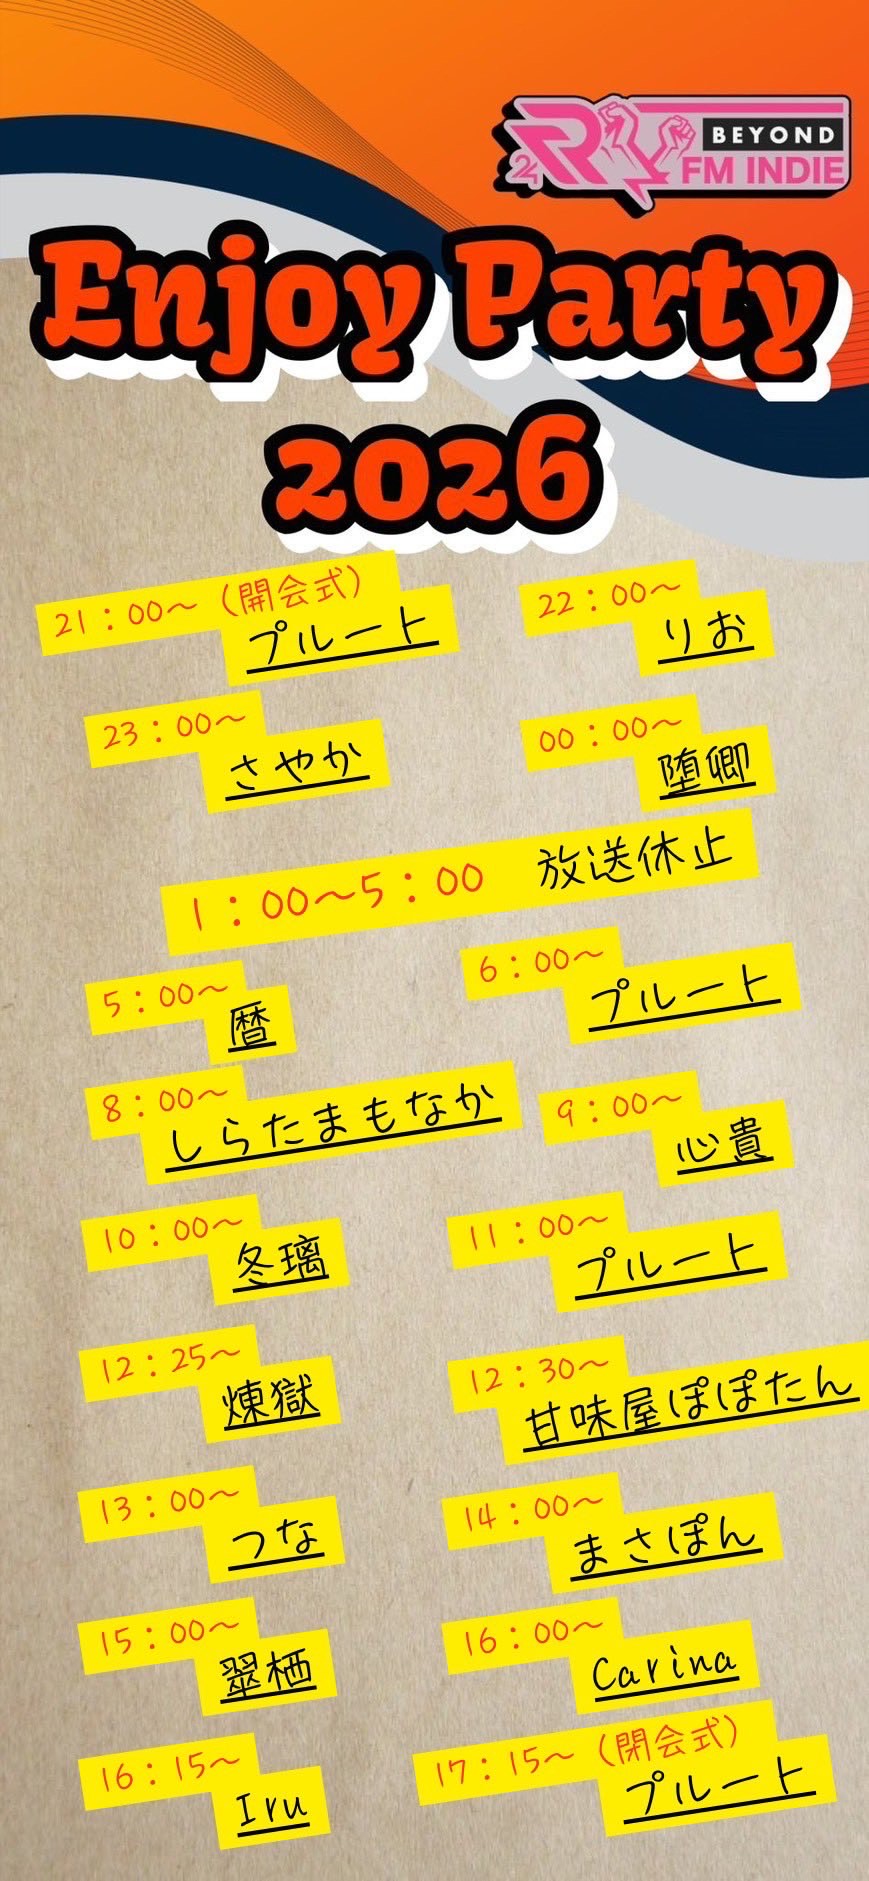 BEYOND
FM INDIE
Enjoy Party
2026
21：00～（開会式）
プルート
22：00～
りお
23：00～
さやか
00：00～
堕卿
1：00～5：00　放送休止
5：00～
暦
6：00～
プルート
8：00～
しらたまもなか
9：00～
心貴
10：00～
冬璃
11：00～
プルート
12：25～
煉獄
12：30～
甘味屋ぽぽたん
13：00～
つな
14：00～
まさぽん
15：00～
翠栖
16：00～
Carina
16：15～
Iru
17：15～（閉会式）
プルート